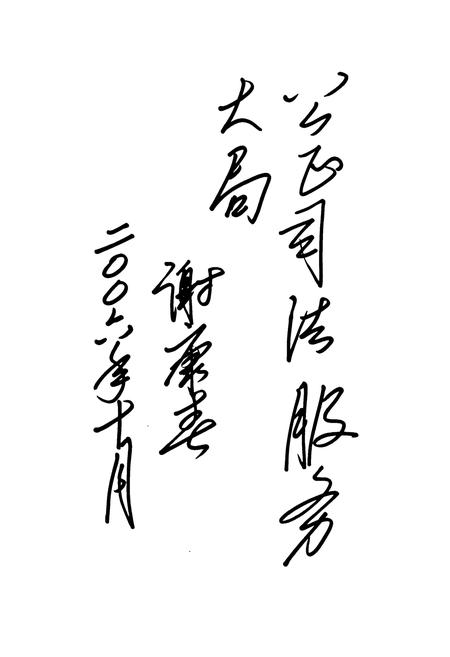 公正司法服务
大局
谢康生
二〇〇六年十月